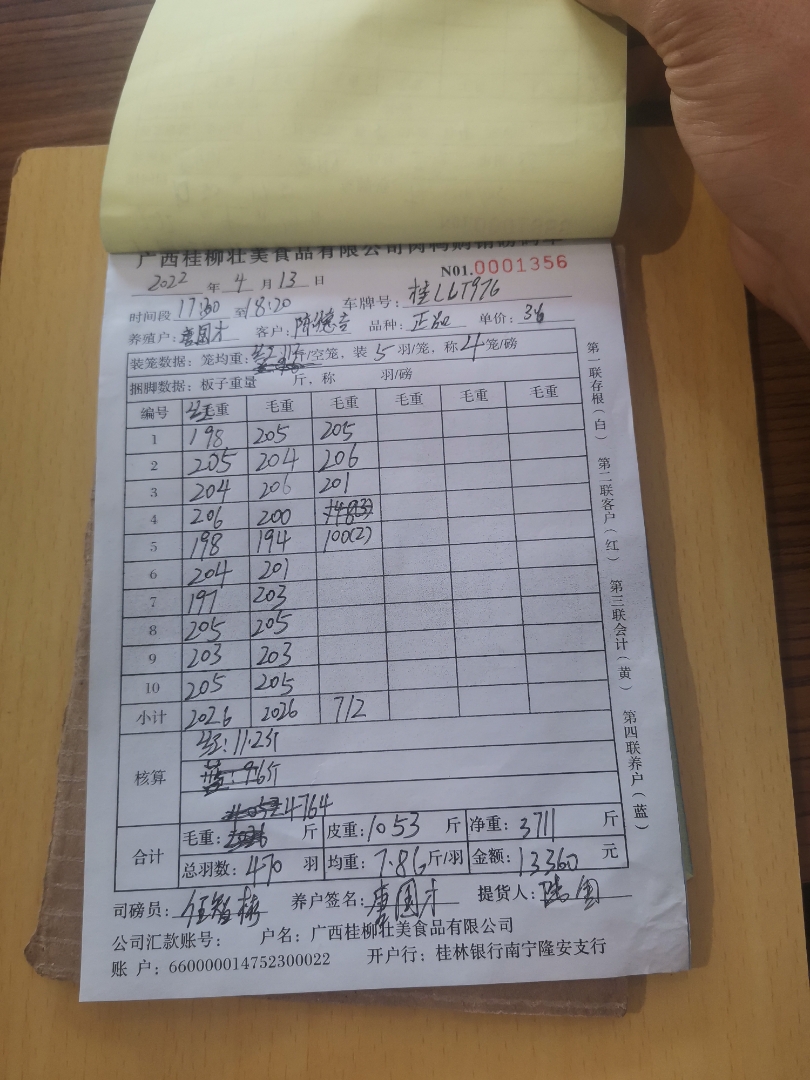 广西桂柳壮美食品有限公司肉鸭购销磅码单
2022 年 4 月 13 日 N01.0001356
时间段 17:30 至 18:20 车牌号:
养殖户: 唐国才 客户: 陈德 品种: 正品 单价: 3.6
装笼数据: 笼均重: 斤/空笼, 装 5 羽/笼, 称 4 笼/磅
捆脚数据: 板子重量 斤, 称 羽/磅
编号 红毛重 毛重 毛重 毛重 毛重 毛重
1 198 205 205
2 205 204 206
3 204 206 201
4 206 200
5 198 194 100(2)
6 204 201
7 197 203
8 205 205
9 203 203
10 205 205
小计 2026 2026 712
核算 红: 11.2斤
蓝: 9.6斤
4764
合计 毛重: 斤 皮重: 1053 斤 净重: 3711 斤
总羽数: 470 羽 均重: 7.86 斤/羽 金额: 13360 元
司磅员: 养户签名: 唐国才 提货人:
公司汇款账号: 户名: 广西桂柳壮美食品有限公司
账 户: 660000014752300022 开户行: 桂林银行南宁隆安支行
第一联存根(白) 第二联客户(红) 第三联会计(黄) 第四联养户(蓝)